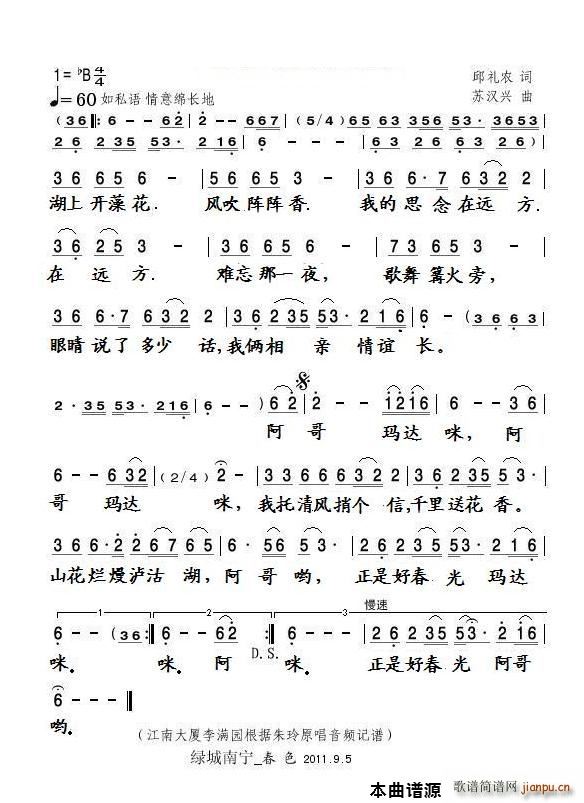 1= ♭B 4/4
邱礼农 词
♩=60 如私语 情意绵长地
苏汉兴 曲
(3 6 |: 6 - - 6 2 | 2 - - 6 6 7 | (5/4) 6 5 6 3 5 3· 3 6 5 3
2 6 2 3 5 5 3· 2 1 6 | 6 - - 3 6 | 2 3 5 5 3 2 6 2 6 )|
3 6 6 5 6 - | 5 6 6 5 6 - | 3 6 6· 7 6 3 2 |
湖上开藻花. 风吹阵阵香. 我的思念在远方.
3 6 2 5 3 - | 2 6 7 6 2 - | 7 3 6 5 6 - |
在远方. 难忘那一夜, 歌舞篝火旁,
3 6 6·7 6 3 2 2 | 3 6 2 3 5 5 3· 2 1 6 | 6 - (3 6 6 3 |
眼睛说了多少话,我俩相亲情谊长。
2· 3 5 5 3· 2 1 6 | 6 - - ) 6 2 | 2 - - 1 2 1 6 | 6 - - 3 6 |
阿哥 玛达咪,阿
6 - - 6 3 2 | (2/4) 2 - | 3 3 6 6 3 6 2 | 3 6 2 3 5 5 3· |
哥 玛达 咪,我托清风捎个信,千里送花香。
3 6 6 6· 2 2 6 7 6 5 | 6 - - 5 3 | 2 6 2 3 5 5 3· 2 1 6 |
山花烂熳泸沽湖,阿哥哟,正是好春光玛达
1 2 3 慢速
6 - - (3 6 :| 6 - - 6 2 :| 6 - - | 2 6 2 3 5 5 3· 2 1 6 |
D.S.
咪. 咪.阿 咪. 正是好春光阿哥
6 - - ||
哟.
(江南大厦李满园根据朱玲原唱音频记谱)
绿城南宁_春 色 2011.9.5
本曲谱源 歌谱简谱网
jianpu.cn